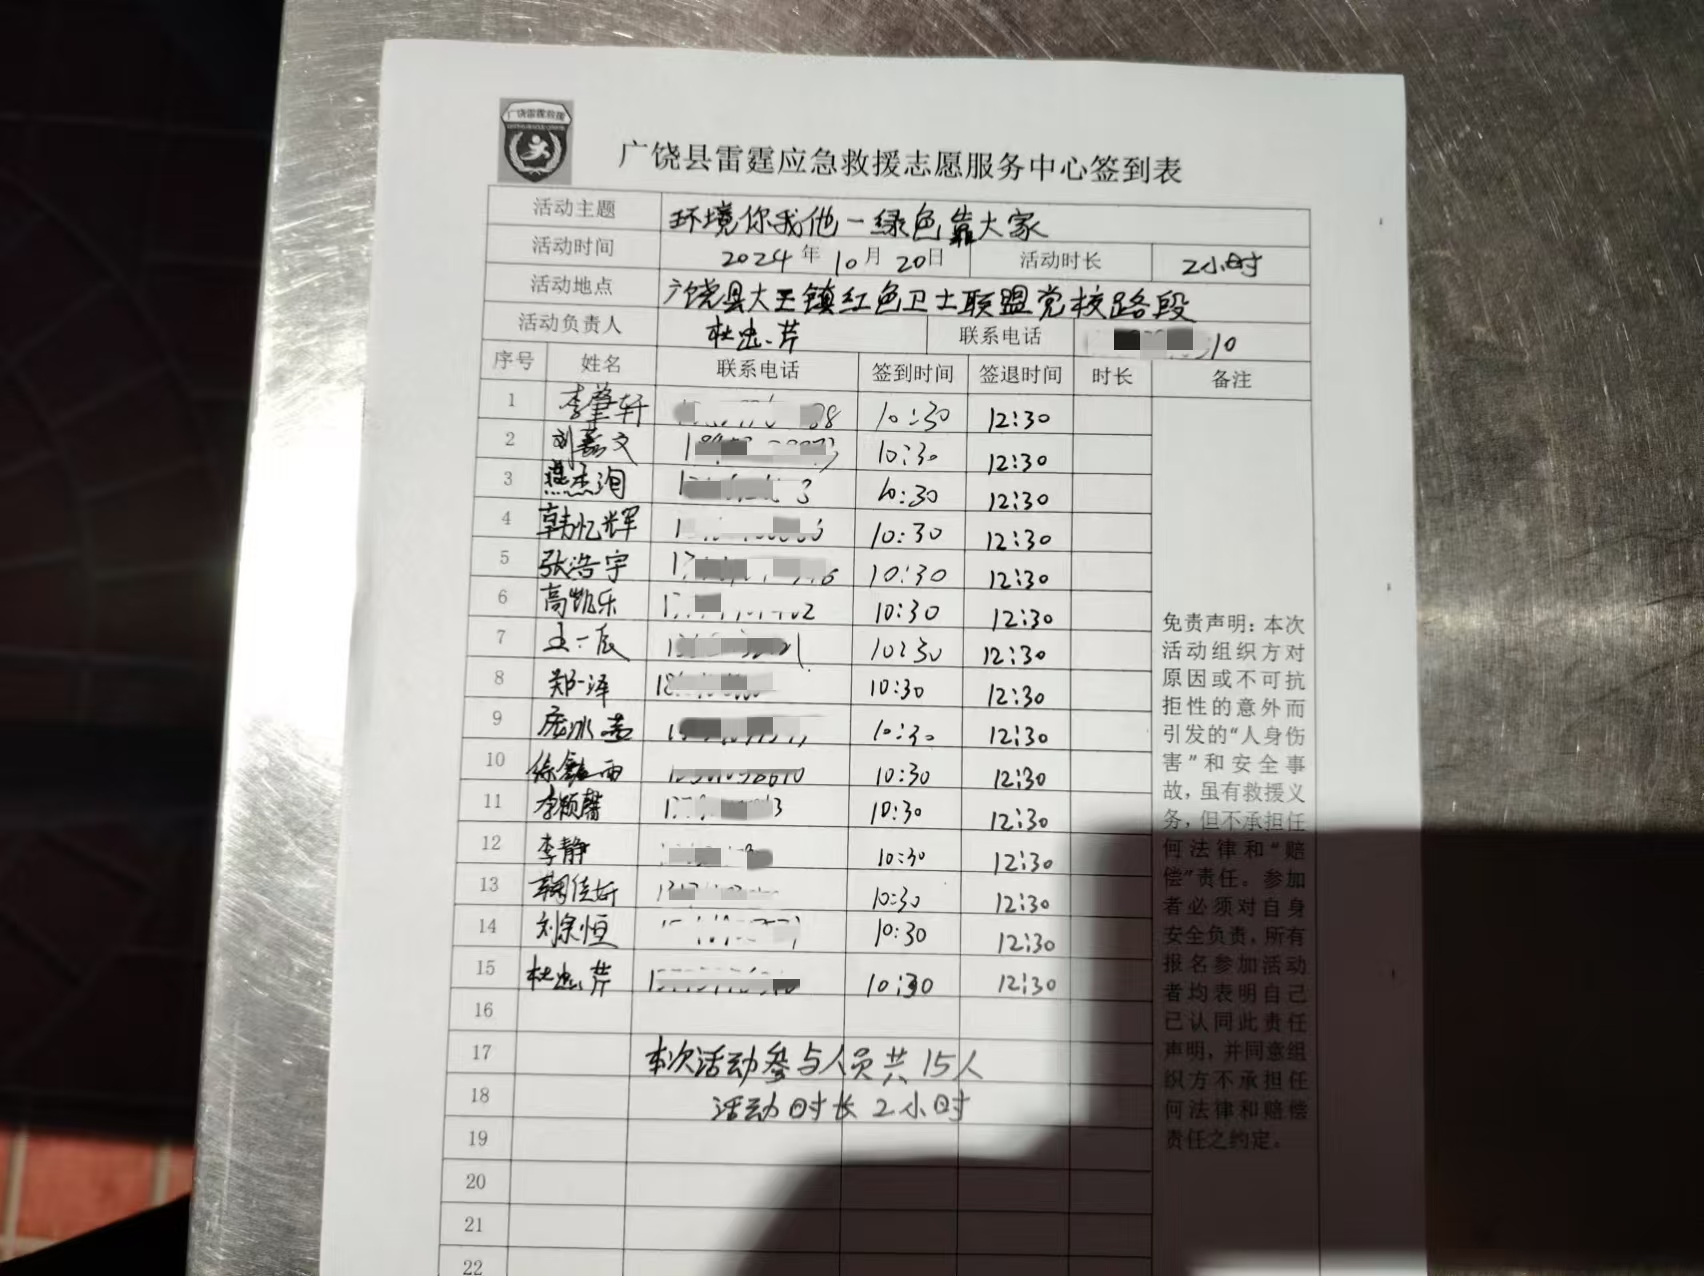 广饶雷霆救援
广饶县雷霆应急救援志愿服务中心签到表
活动主题 环境你我他一绿色靠大家
活动时间 2024年10月20日 活动时长 2小时
活动地点 广饶县大王镇红色卫士联盟党校路段
活动负责人 杜忠芹 联系电话 10
序号 姓名 联系电话 签到时间 签退时间 时长 备注
1 李肇轩 88 10:30 12:30
2 刘嘉文 10:30 12:30
3 燕杰洵 3 10:30 12:30
4 韩忆辉 10:30 12:30
5 张浩宇 6 10:30 12:30
6 高凯乐 02 10:30 12:30
7 王一辰 10:30 12:30
8 郑一泽 10:30 12:30
9 庞冰 10:30 12:30
10 徐 西 10:30 12:30
11 李颖馨 3 10:30 12:30
12 李静 10:30 12:30
13 佳妤 10:30 12:30
14 刘宗恒 10:30 12:30
15 杜忠芹 10:30 12:30
16
17 本次活动参与人员共15人
18 活动时长2小时
19
20
21
22
免责声明：本次
活动组织方对
原因或不可抗
拒性的意外而
引发的“人身伤
害”和安全事
故，虽有救援义
务，但不承担任
何法律和“赔
偿”责任。参加
者必须对自身
安全负责，所有
报名参加活动
者均表明自己
已认同此责任
声明，并同意组
织方不承担任
何法律和赔偿
责任之约定。